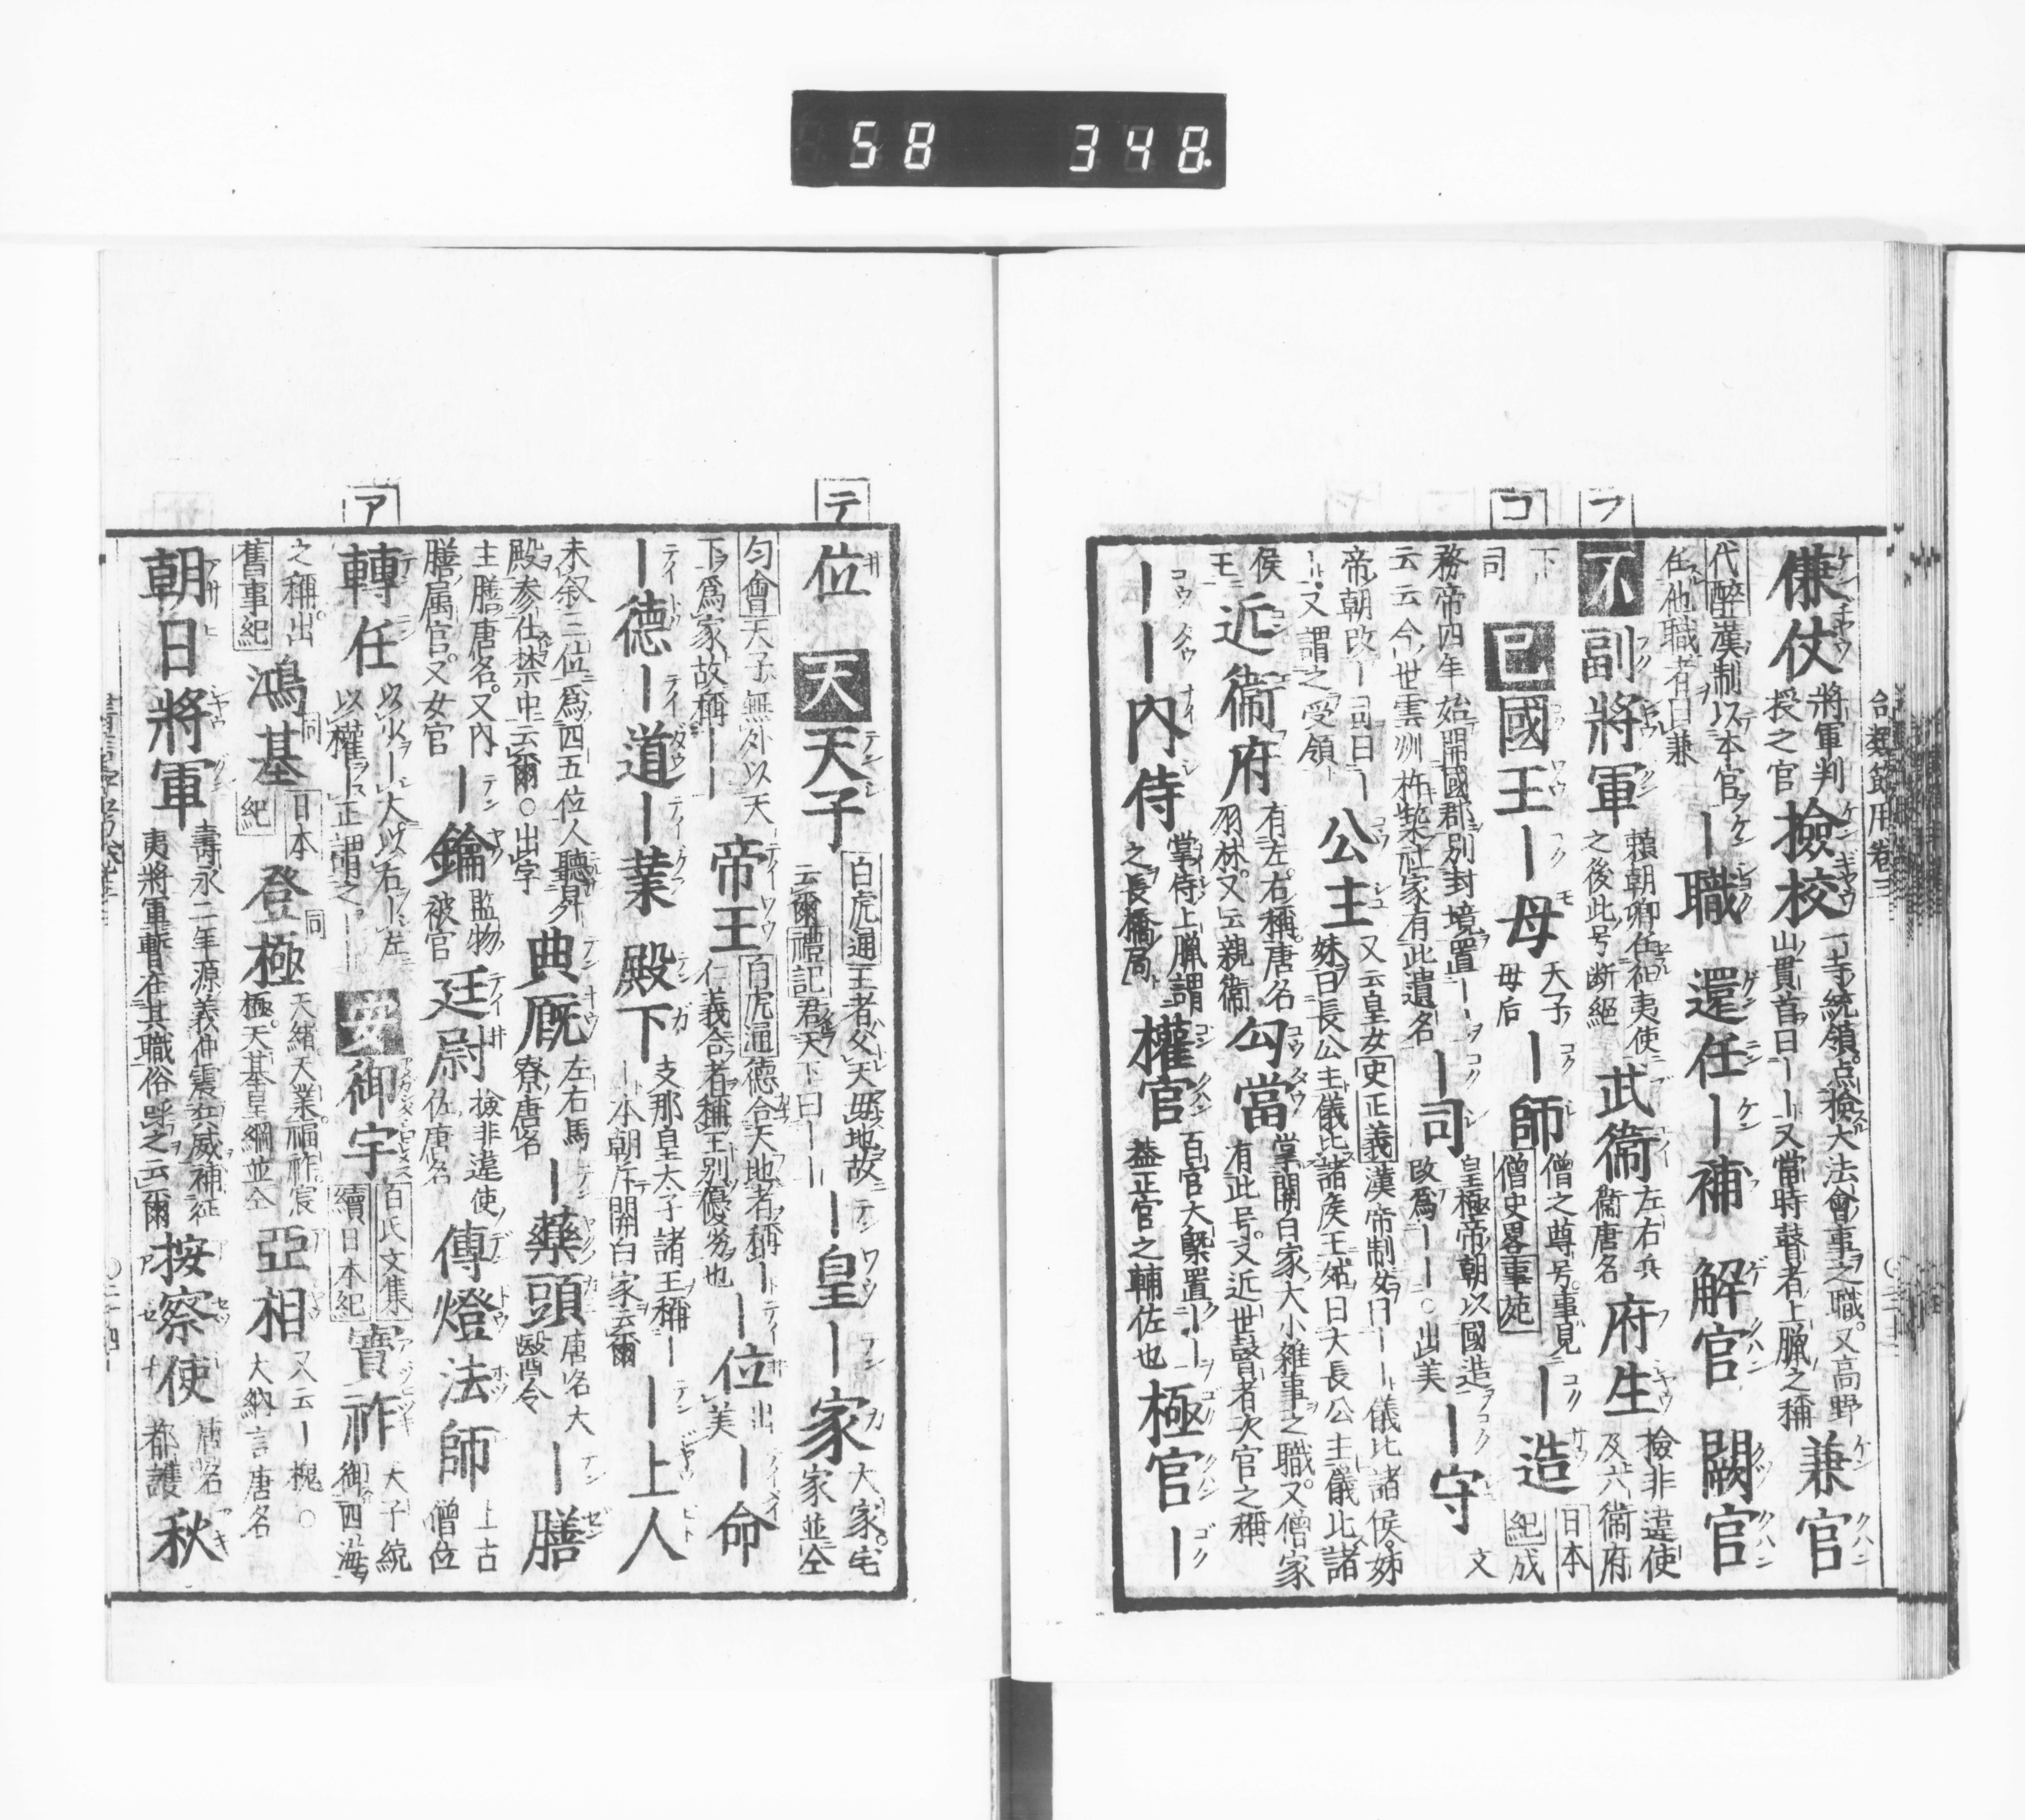 58 348
合類節用卷三
傔仗 將軍判授之官 撿校 一寺統領点撿大法會事之職又高野山貫首曰――又當時瞽者上臈之稱 兼官
代醉漢制以本官任他職者曰兼 ―職 還任 ―補 解官 闕官
フ
不 副將軍 賴朝卿任征夷使之後此号断絕 武衞 左右兵衞唐名 府生 撿非違使及六衞府
下司
コ
巳 國王 ―母 天子母后 ―師 僧之尊号事見僧史畧事苑 ―造 日本紀成
務帝四年始開國郡別封境置――云云今世雲洲杵築社家有此遺名 ―司 皇極帝朝以國造改爲――○出美 ―守 文
帝朝改―司曰――又謂之受領 公主 又云皇女史正義漢帝制女曰――儀比諸侯姊妹曰長公主儀比諸侯王姑曰大長公主儀比諸
侯王 近衞府 有左右稱唐名羽林又云親衞 勾當 掌關白家大小雜事之職又僧家有此号又近世瞽者次官之稱
――內侍 掌侍上臈謂之長橋局 權官 百官大槩置――益正官之輔佐也 極官 ―
テ
位 天 天子 百虎通王者父天母地故云爾禮記君天下曰―― ―皇 ―家 大家宅家並仝
勻會天子無外以天下爲家故稱―― 帝王 百虎通德合天地者稱―仁義合者稱王別優劣也 ―位 出美 ―命
―德 ―道 ―業 殿下 支那皇太子諸王稱――本朝斥關白家云爾 ―上人
未叙三位爲四五位人聽昇殿参仕禁中云爾○出字 典厩 左右馬寮唐名 ―藥頭 唐名大醫令 ―膳
主膳唐名又內膳属官又女官 ―鑰 監物被官 廷尉 撿非違使佐唐名 傳燈法師 上古僧位
ア
轉任 以少―大以右―左以權―正謂之―― 安 御宇 百氏文集續日本紀 寶祚 天子統御四海
之稱出舊事紀 鴻基 同日本紀 登極 同天緒天業福祚宸極天基皇綱並仝 亞相 又云―槐○大納言唐名
朝日將軍 壽永二年源義仲震兵威補征夷將軍暫在其職俗呼之云爾 按察使 唐名都護 秋